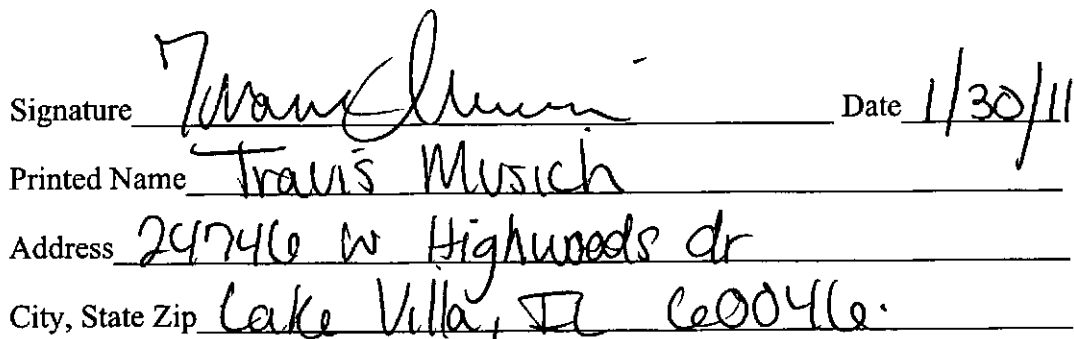 Signature Date 1/30/11
Printed Name Travis Musich
Address 24746 W Highwoods dr
City, State Zip Lake Villa, IL 60046.